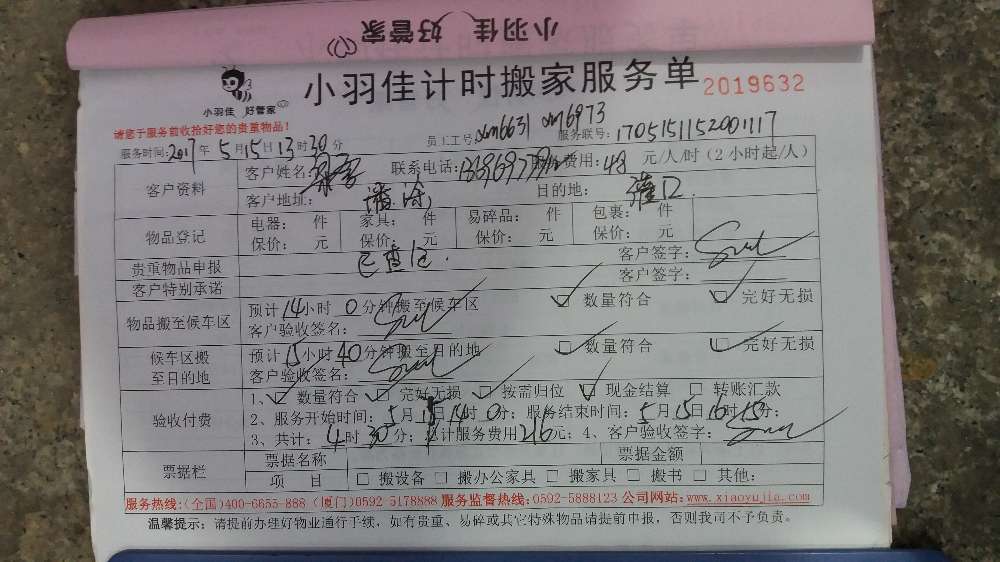 小羽佳 好管家
小羽佳 好管家
小羽佳计时搬家服务单 2019632
请您于服务前收拾好您的贵重物品!
员工工号: xm6631 xm6973 服务联号: 1705151152001117
服务时间: 2017 年 5 月 15 日 13 时 30 分
客户资料
客户姓名: 联系电话: 服务费用: 48 元/人/时 (2 小时起/人)
客户地址: 潘涂 目的地: 灌口
物品登记
电器: 件 家具: 件 易碎品: 件 包裹: 件
保价: 元 保价: 元 保价: 元 保价: 元
贵重物品申报 已查过. 客户签字:
客户特别承诺 客户签字:
物品搬至候车区
预计 14 小时 0 分钟搬至候车区 ✓ 数量符合 ✓ 完好无损
客户验收签名:
候车区搬至目的地
预计 15 小时 40 分钟搬至目的地 ✓ 数量符合 ✓ 完好无损
客户验收签名:
验收付费
1、✓ 数量符合 ✓ 完好无损 ✓ 按需归位 ✓ 现金结算 □ 转账汇款
2、服务开始时间: 5 月 15 日 14 时 0 分; 服务结束时间: 5 月 15 日 16 时 15 分;
3、共计: 4 时 30 分; 总计服务费用 216 元; 4、客户验收签字:
票据栏
票据名称 票据金额
项 目 □ 搬设备 □ 搬办公家具 □ 搬家具 □ 搬书 □ 其他:
服务热线:(全国)400-6655-888 (厦门)0592-5178888 服务监督热线:0592-5888123 公司网站:www.xiaoyujia.com
温馨提示: 请提前办理好物业通行手续, 如有贵重、易碎或其它特殊物品请提前申报, 否则我司不予负责。